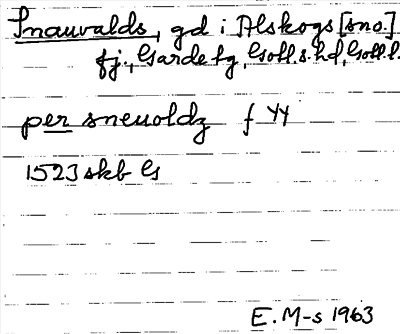 Snauvalds, gd i Alskogs [sno.]
fj., Garde tg, Gotl.s.hd, Gotl.l.
per sneuoldz f 44
1523 skb G
E. M-s 1963